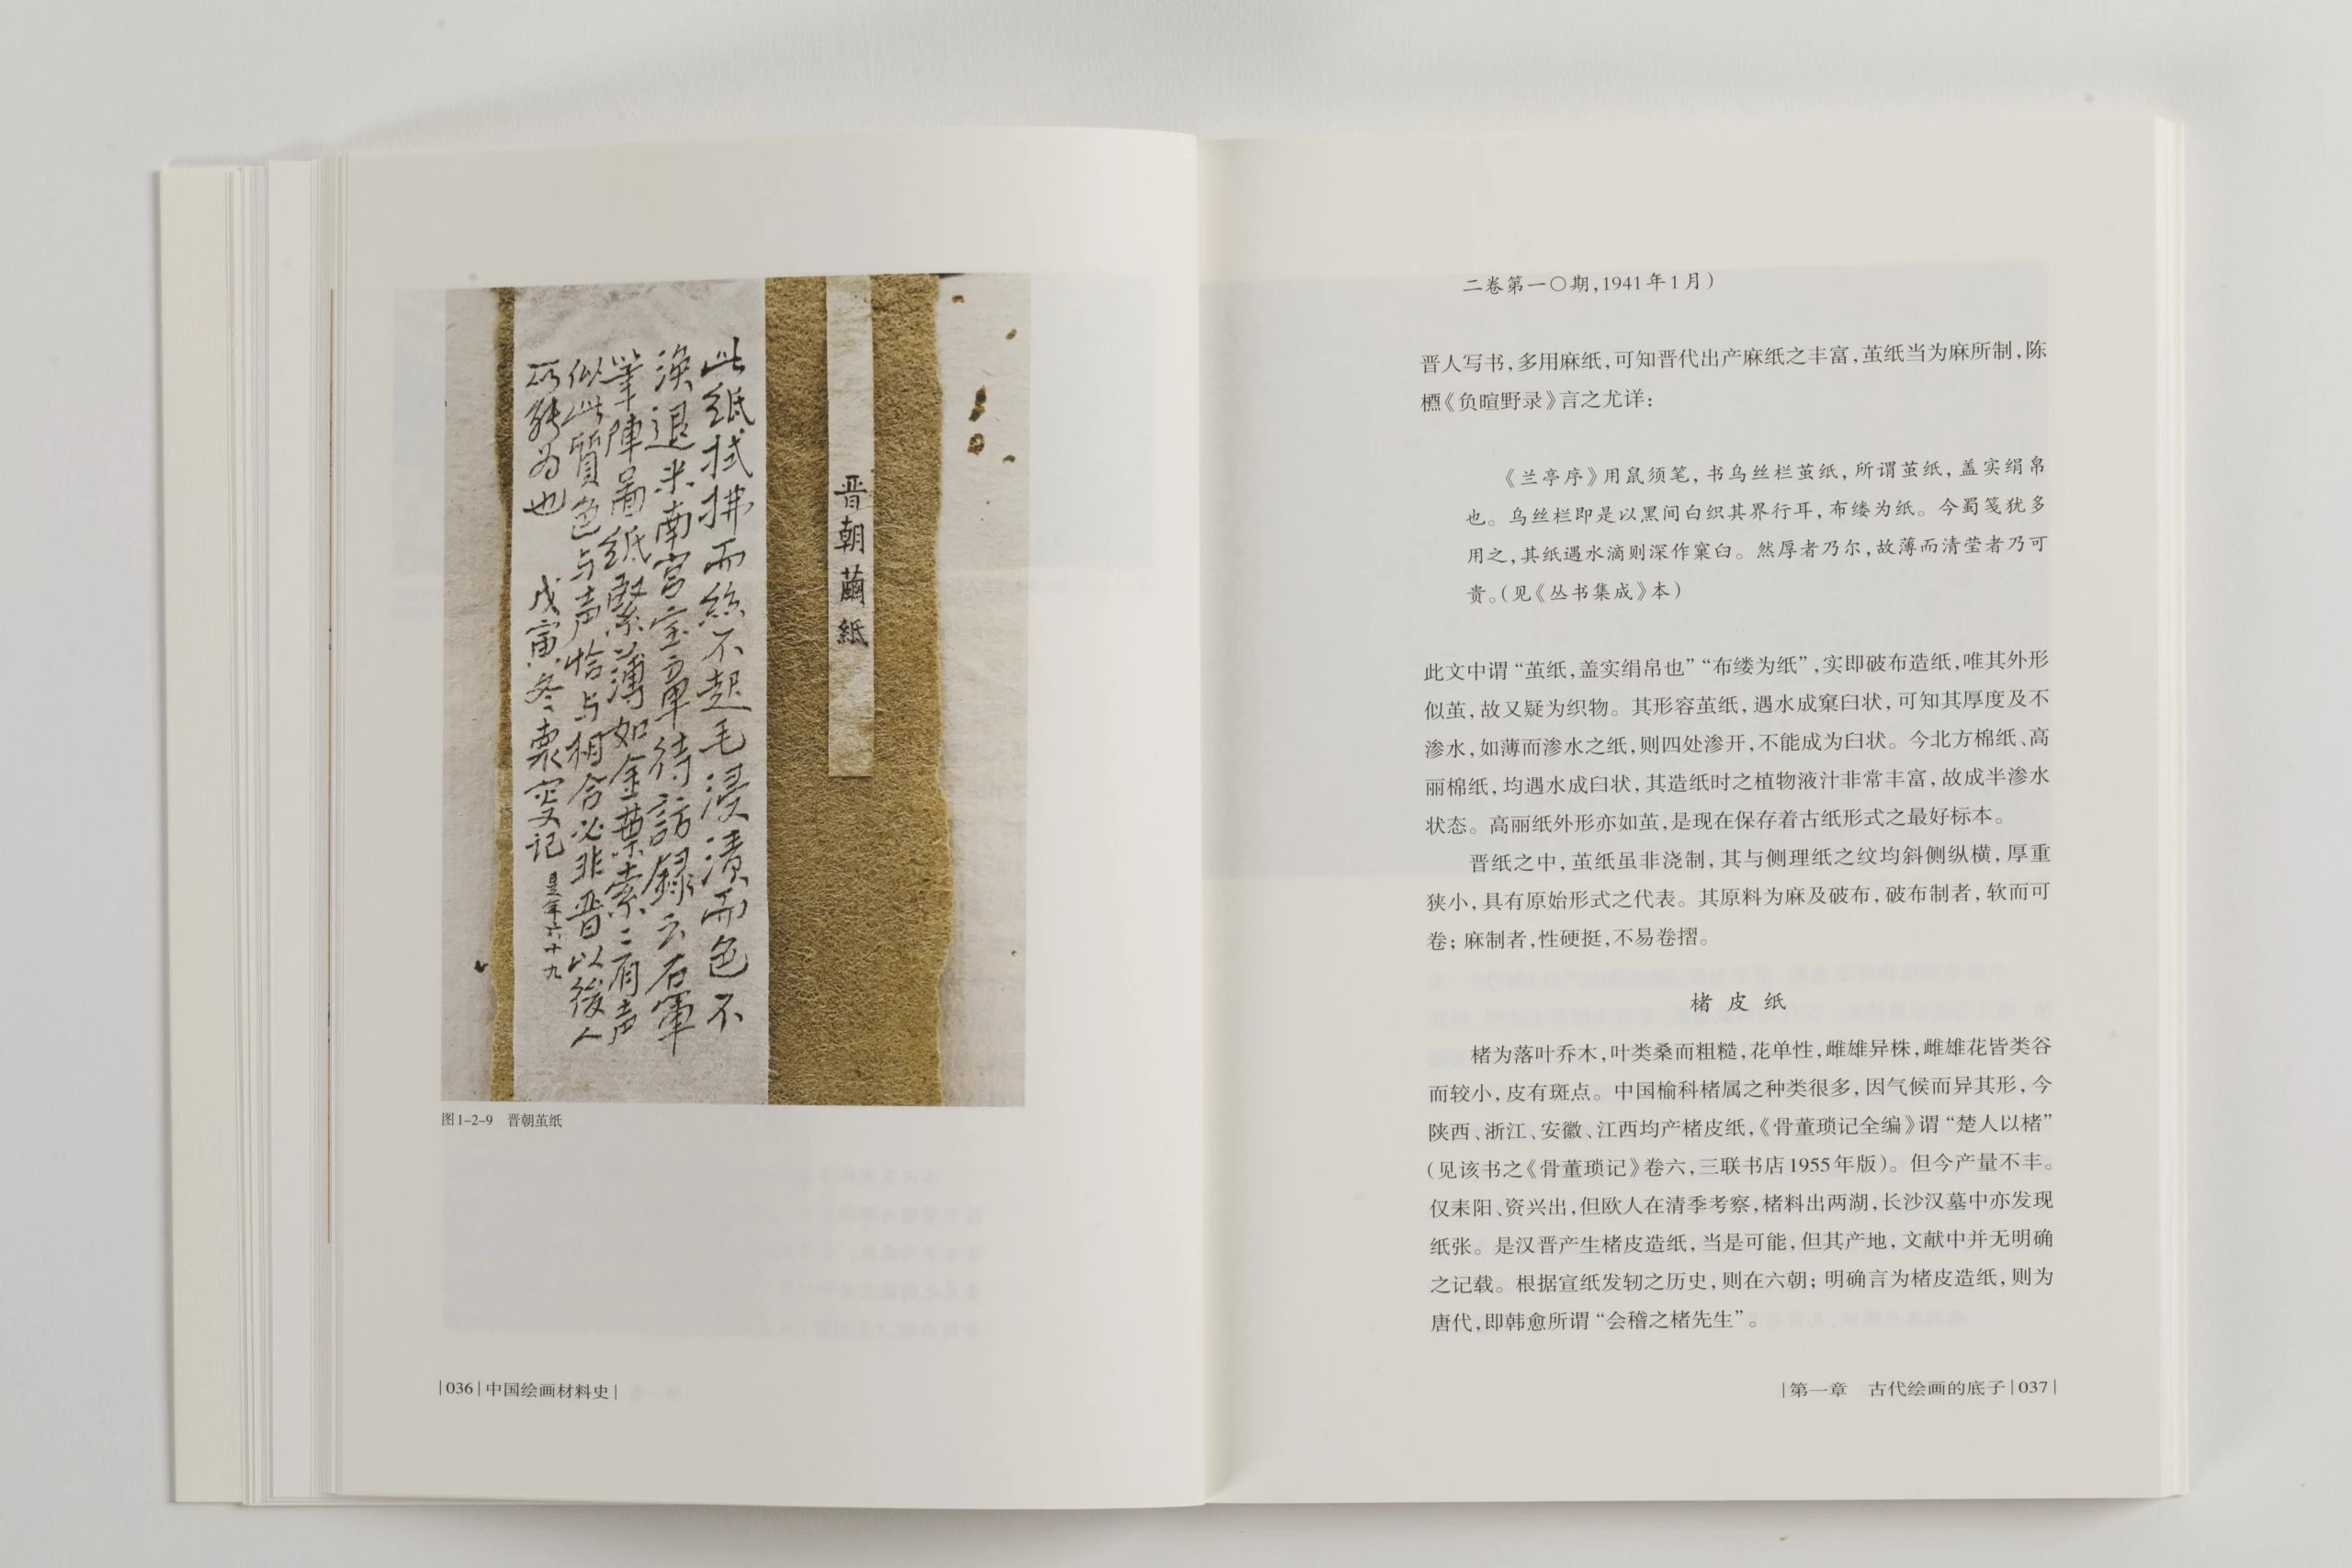 此纸拭拂而絲不起毛浸漬而色不
渙退米南宫宝章待訪録云右軍
筆陣圖紙緊薄如金葉索二有声
似此質色与声恰与相合必非晋以後人
所能为也
戊寅冬袁安记
是年六十九
晋朝繭紙
图1-2-9　晋朝茧纸
|036|中国绘画材料史|
二卷第一〇期,1941年1月)
晋人写书,多用麻纸,可知晋代出产麻纸之丰富,茧纸当为麻所制,陈
槱《负暄野录》言之尤详:
《兰亭序》用鼠须笔,书乌丝栏茧纸,所谓茧纸,盖实绢帛
也。乌丝栏即是以黑间白织其界行耳,布缕为纸。今蜀笺犹多
用之,其纸遇水滴则深作窠臼。然厚者乃尔,故薄而清莹者乃可
贵。(见《丛书集成》本)
此文中谓“茧纸,盖实绢帛也”“布缕为纸”,实即破布造纸,唯其外形
似茧,故又疑为织物。其形容茧纸,遇水成窠臼状,可知其厚度及不
渗水,如薄而渗水之纸,则四处渗开,不能成为臼状。今北方棉纸、高
丽棉纸,均遇水成臼状,其造纸时之植物液汁非常丰富,故成半渗水
状态。高丽纸外形亦如茧,是现在保存着古纸形式之最好标本。
晋纸之中,茧纸虽非浇制,其与侧理纸之纹均斜侧纵横,厚重
狭小,具有原始形式之代表。其原料为麻及破布,破布制者,软而可
卷;麻制者,性硬挺,不易卷摺。
楮皮纸
楮为落叶乔木,叶类桑而粗糙,花单性,雌雄异株,雌雄花皆类谷
而较小,皮有斑点。中国榆科楮属之种类很多,因气候而异其形,今
陕西、浙江、安徽、江西均产楮皮纸,《骨董琐记全编》谓“楚人以楮”
(见该书之《骨董琐记》卷六,三联书店1955年版)。但今产量不丰。
仅耒阳、资兴出,但欧人在清季考察,楮料出两湖,长沙汉墓中亦发现
纸张。是汉晋产生楮皮造纸,当是可能,但其产地,文献中并无明确
之记载。根据宣纸发轫之历史,则在六朝;明确言为楮皮造纸,则为
唐代,即韩愈所谓“会稽之楮先生”。
|第一章　古代绘画的底子|037|